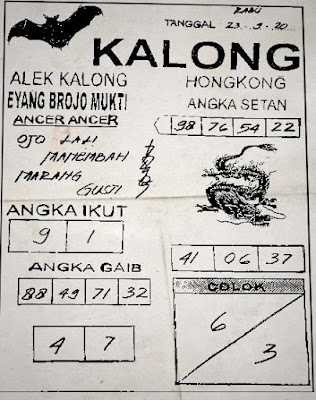 RABU
TANGGAL 23-9-20...
KALONG
ALEK KALONG
EYANG BROJO MUKTI
ANCER ANCER
OJO LALI
MANEMBAH
MARANG
GUSTI
HONGKONG
ANGKA SETAN
98 76 54 22
ANGKA IKUT
9 1
ANGKA GAIB
88 49 71 32
4 7
41 06 37
COLOK
6
3